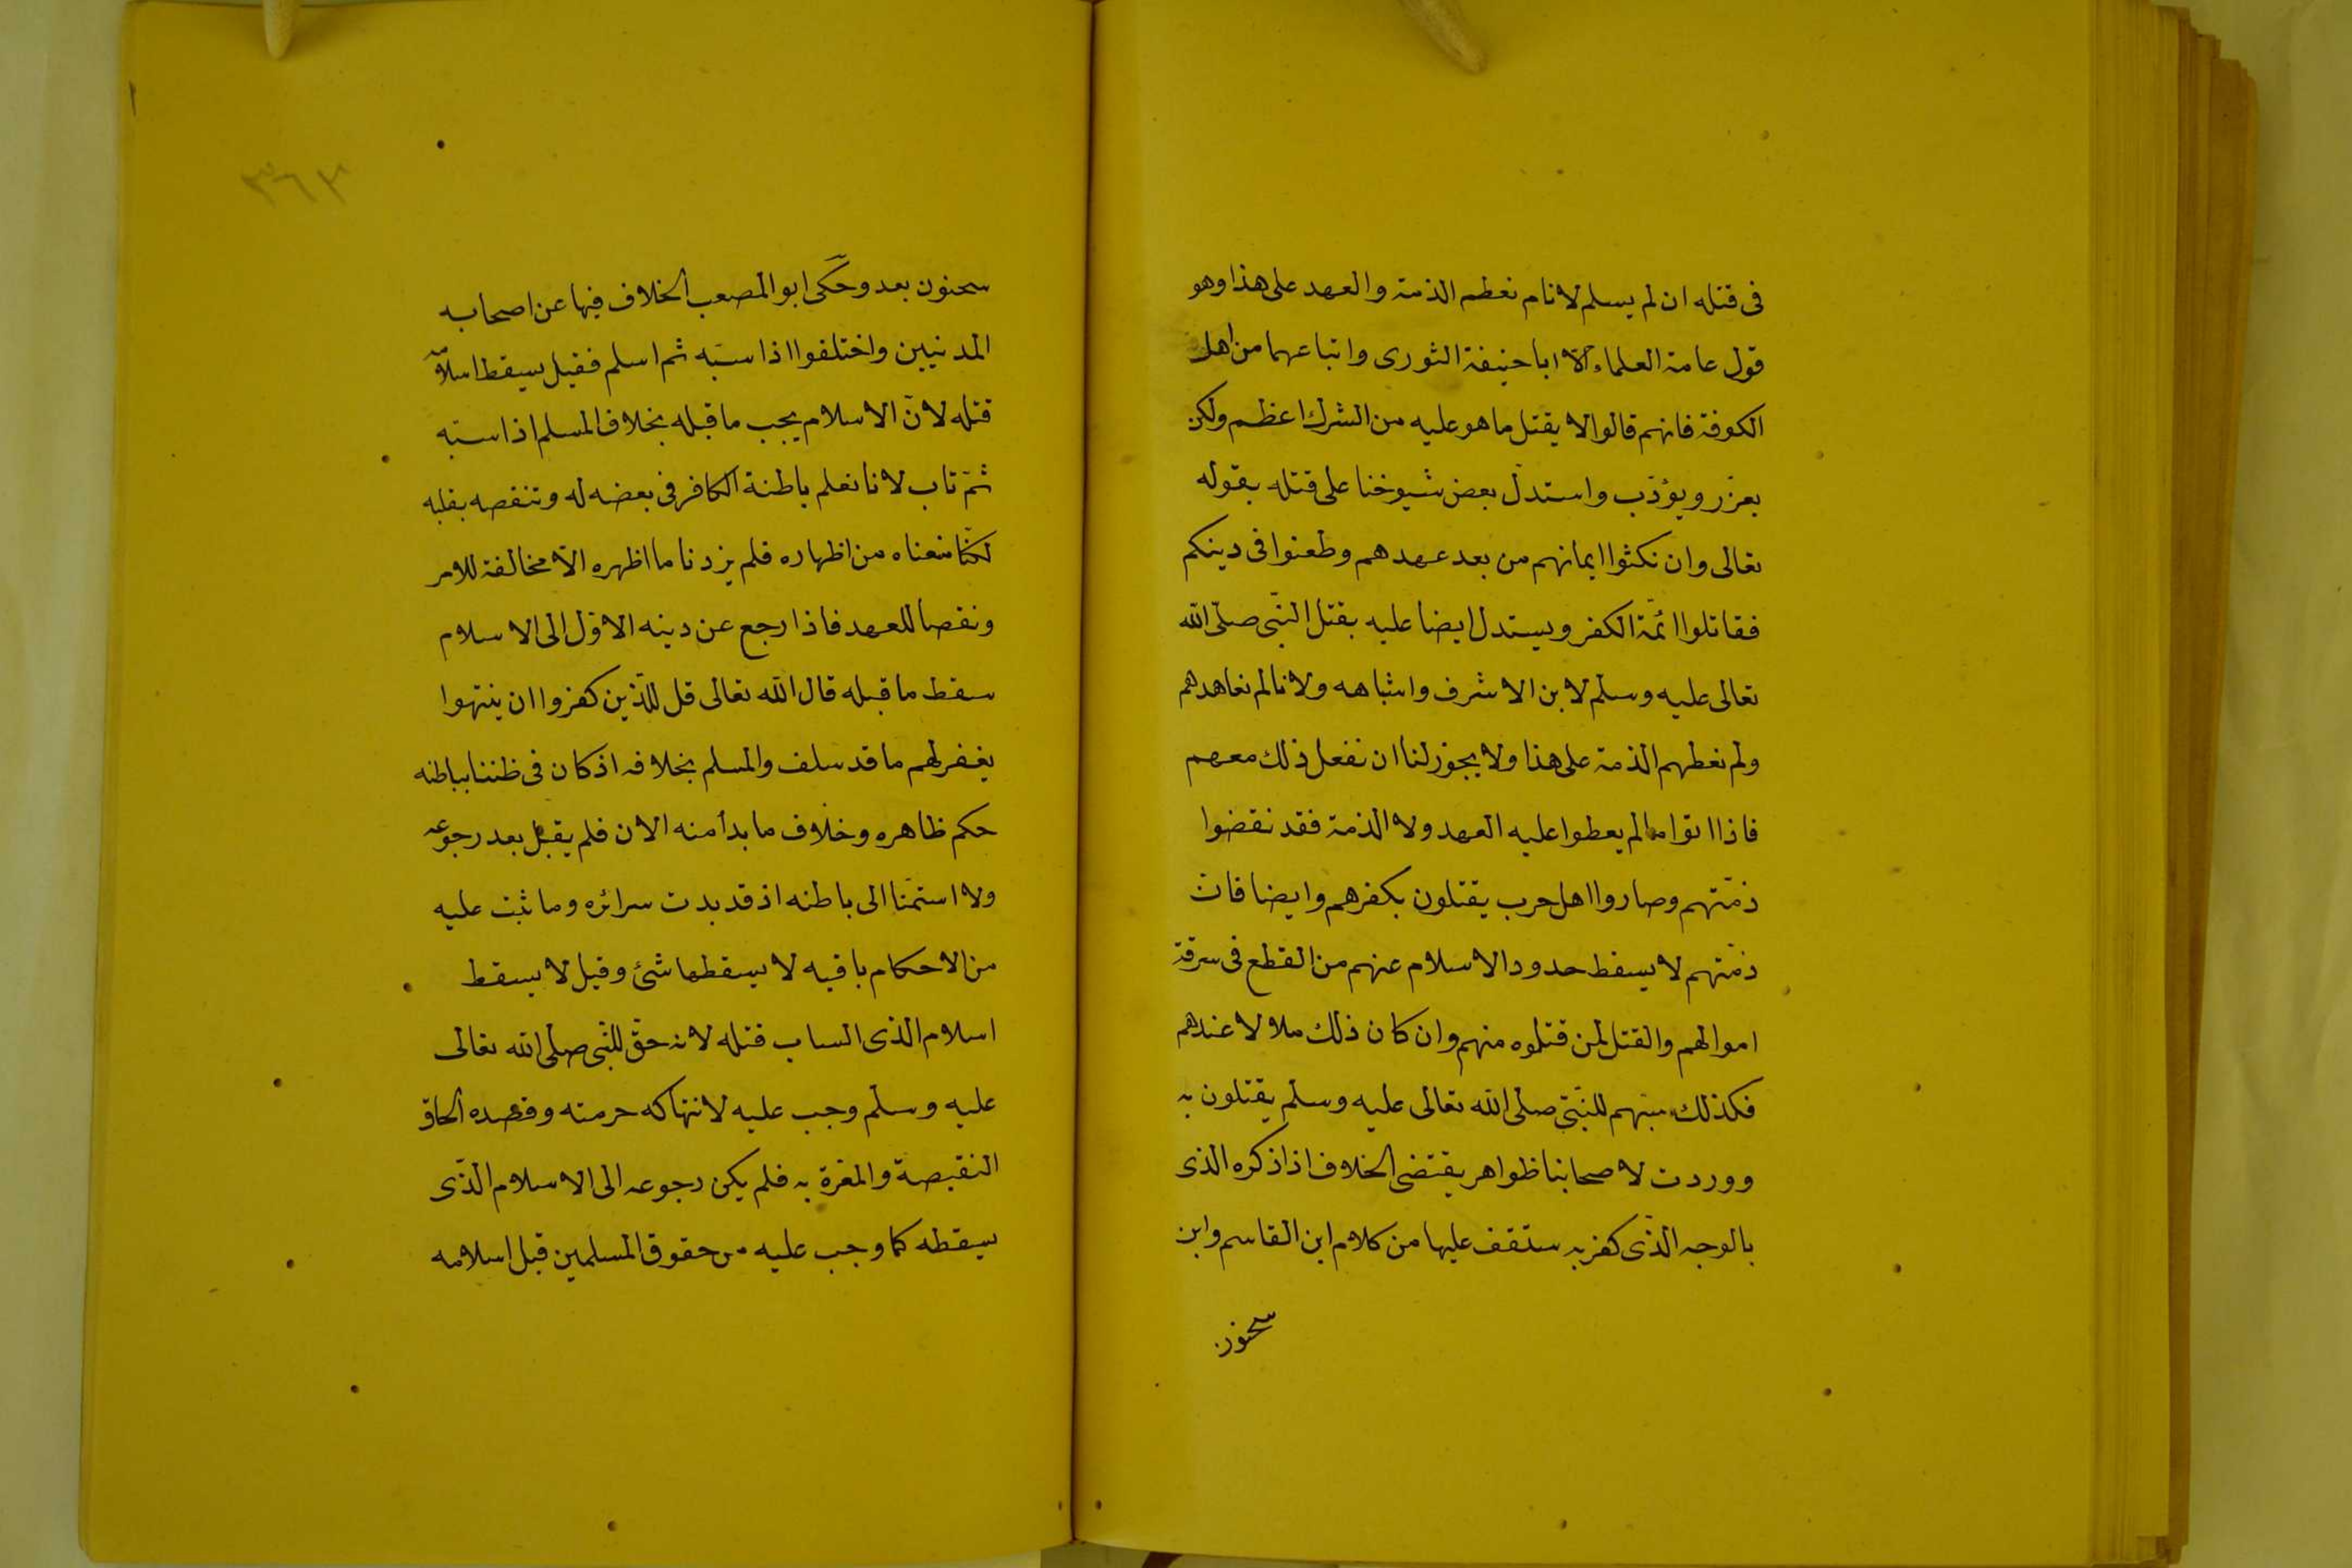 فى قتله ان لم يسلم لانا م نعطه الذمة والعهد على هذا وهو
قول عامة العلماء الّا ابا حنيفة الثورى واتباعهما من اهل
الكوفة فانهم قالوا لا يقتل ما هو عليه من الشرك اعظم ولكن
يعزّر ويؤدّب واستدلّ بعض شيوخنا على قتله بقوله
تعالى وان نكثوا ايمانهم من بعد عهدهم وطعنوا فى دينكم
فقاتلوا ائمّة الكفر ويستدل ايضا عليه بقتل النّبى صلّى اللّه
تعالى عليه وسلّم لابن الاشرف واشباهه ولانا لم نعاهدهم
ولم نعطهم الذمة على هذا ولا يجوز لنا ان نفعل ذلك معهم
فاذا اتوا ما لم يعطوا عليه العهد ولا الذمة فقد نقضوا
ذمّتهم وصاروا اهل حرب يقتلون بكفرهم وايضا فانّ
ذمّتهم لا يسقط حدود الاسلام عنهم من القطع فى سرقة
اموالهم والقتل لمن قتلوه منهم وان كان ذلك حلالا عندهم
فكذلك سبّهم للنّبىّ صلى الله تعالى عليه وسلم يقتلون به
ووردت لاصحابنا ظواهر يقتضى الخلاف اذا ذكره الذى
بالوجه الذّى كفر به ستقف عليها من كلام ابن القاسم وابن
سحنون
٣٦٣
سحنون بعد وحكى ابو المصعب الخلاف فيها عن اصحابه
المدنيين واختلفوا اذا سبّه ثم اسلم فقيل يسقط اسلامه
قتله لانّ الاسلام يجب ما قبله بخلاف المسلم اذا سبّه
ثمّ تاب لانا نعلم باطنة الكافر فى بعضه له وتنقصه بقلبه
لكنّا منعناه من اظهاره فلم يزدنا ما اظهره الّا مخالفة للامر
ونقصا للعهد فاذا رجع عن دينه الاوّل الى الاسلام
سقط ما قبله قال اللّه تعالى قل للّذين كفروا ان ينتهوا
يغفر لهم ما قد سلف والمسلم بخلافه اذ كان فى ظننا بباطنه
حكم ظاهره وخلاف ما بدأ منه الان فلم يقبل بعد رجوعه
ولا استمّنا الى باطنه اذ قد بدت سرائره وما ثبت عليه
من الاحكام باقيه لا يسقطها شئ وقيل لا يسقط
اسلام الذى الساب قتله لانه حقّ للنّبى صلى الله تعالى
عليه وسلّم وجب عليه لانتهاكه حرمته وقصده الحاق
النقيصة والمعّرة به فلم يكن رجوعه الى الاسلام الذّى
يسقطه كما وجب عليه من حقوق المسلمين قبل اسلامه